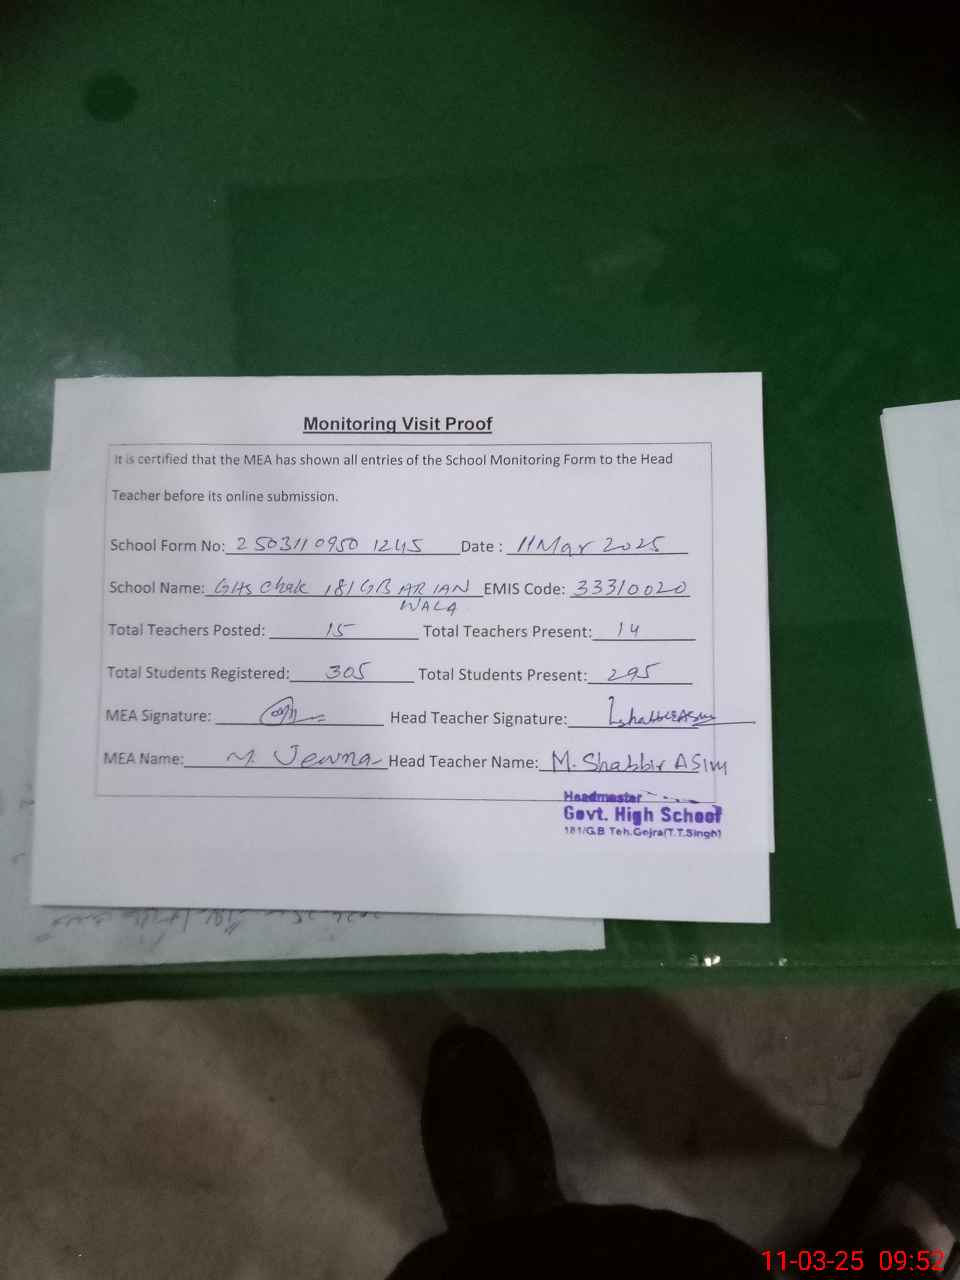 Monitoring Visit Proof
It is certified that the MEA has shown all entries of the School Monitoring Form to the Head
Teacher before its online submission.
School Form No: 2503110950 1245 Date : 11 Mar 2025
School Name: GHS Chak 181 GB ARIAN EMIS Code: 33310020
WALA
Total Teachers Posted: 15 Total Teachers Present: 14
Total Students Registered: 305 Total Students Present: 295
MEA Signature: Head Teacher Signature: ShabbirAsim
MEA Name: M. Head Teacher Name: M. Shabbir ASim
Headmaster
Govt. High School
181/G.B Teh.Gojra(T.T.Singh)
11-03-25 09:52